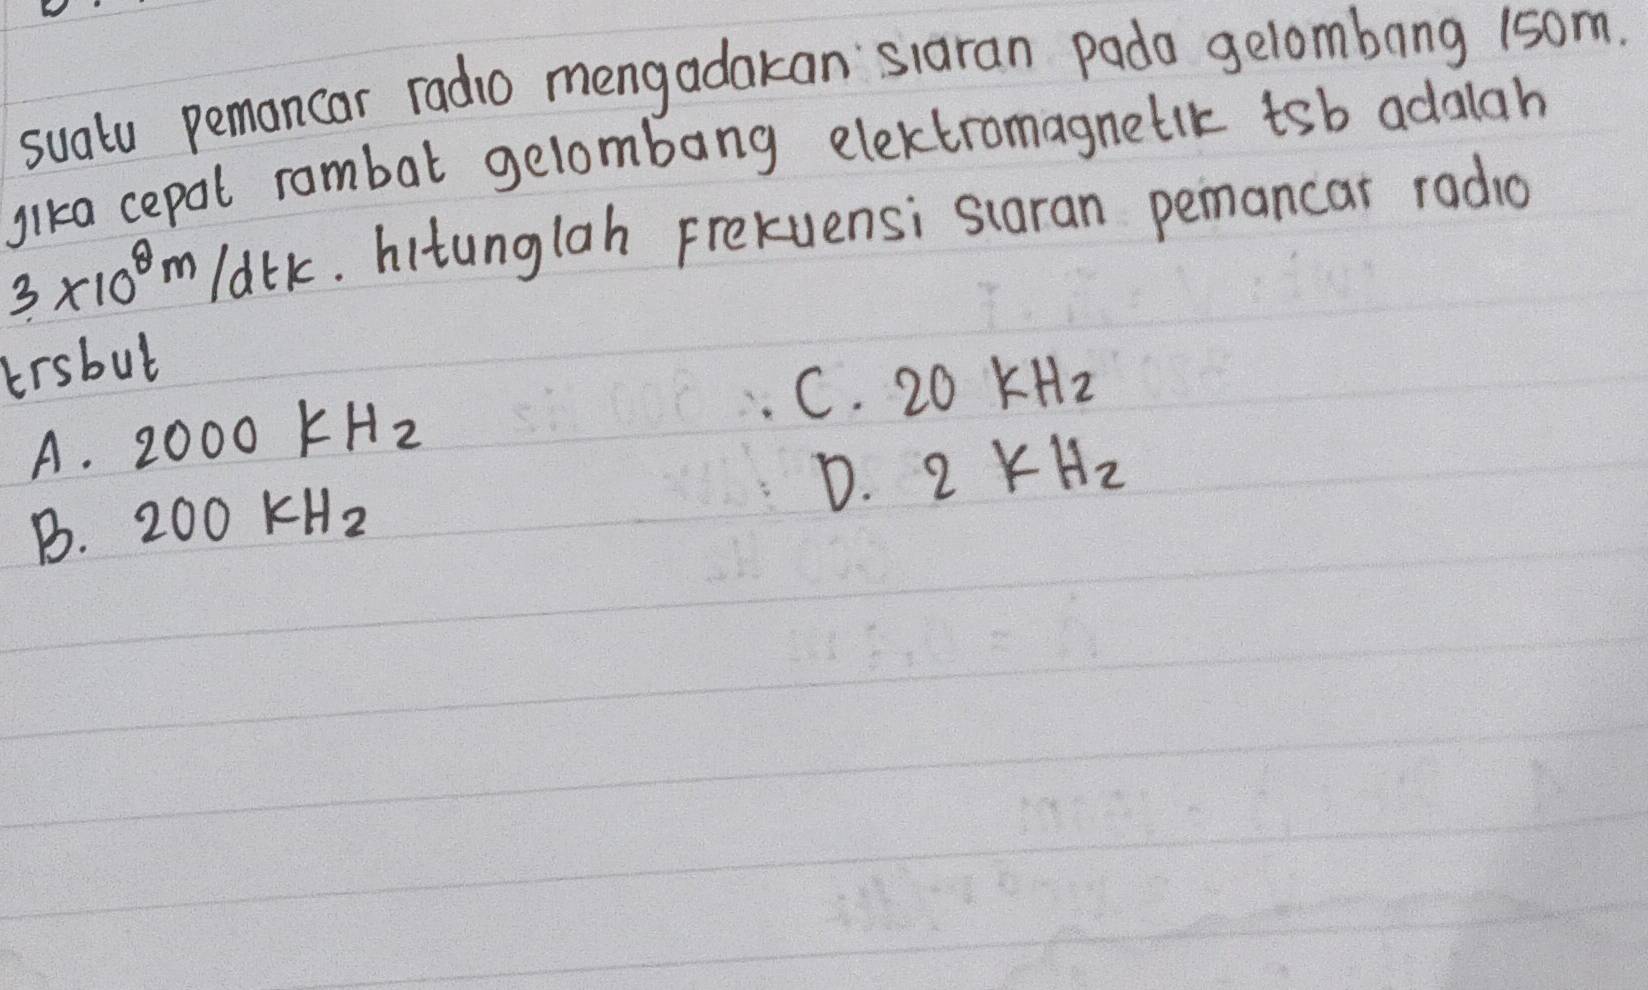 suatu pemancar radio mengadakan siaran pada gelombang 150m.
jika cepat rambat gelombang elektromagnetik tsb adalah
3 x10⁸m/dtk. hitunglah Frekuensi siaran pemancar radio
trsbut
A. 2000 KHz
C. 20 KHz
B. 200 KHz
D. 2 KHz